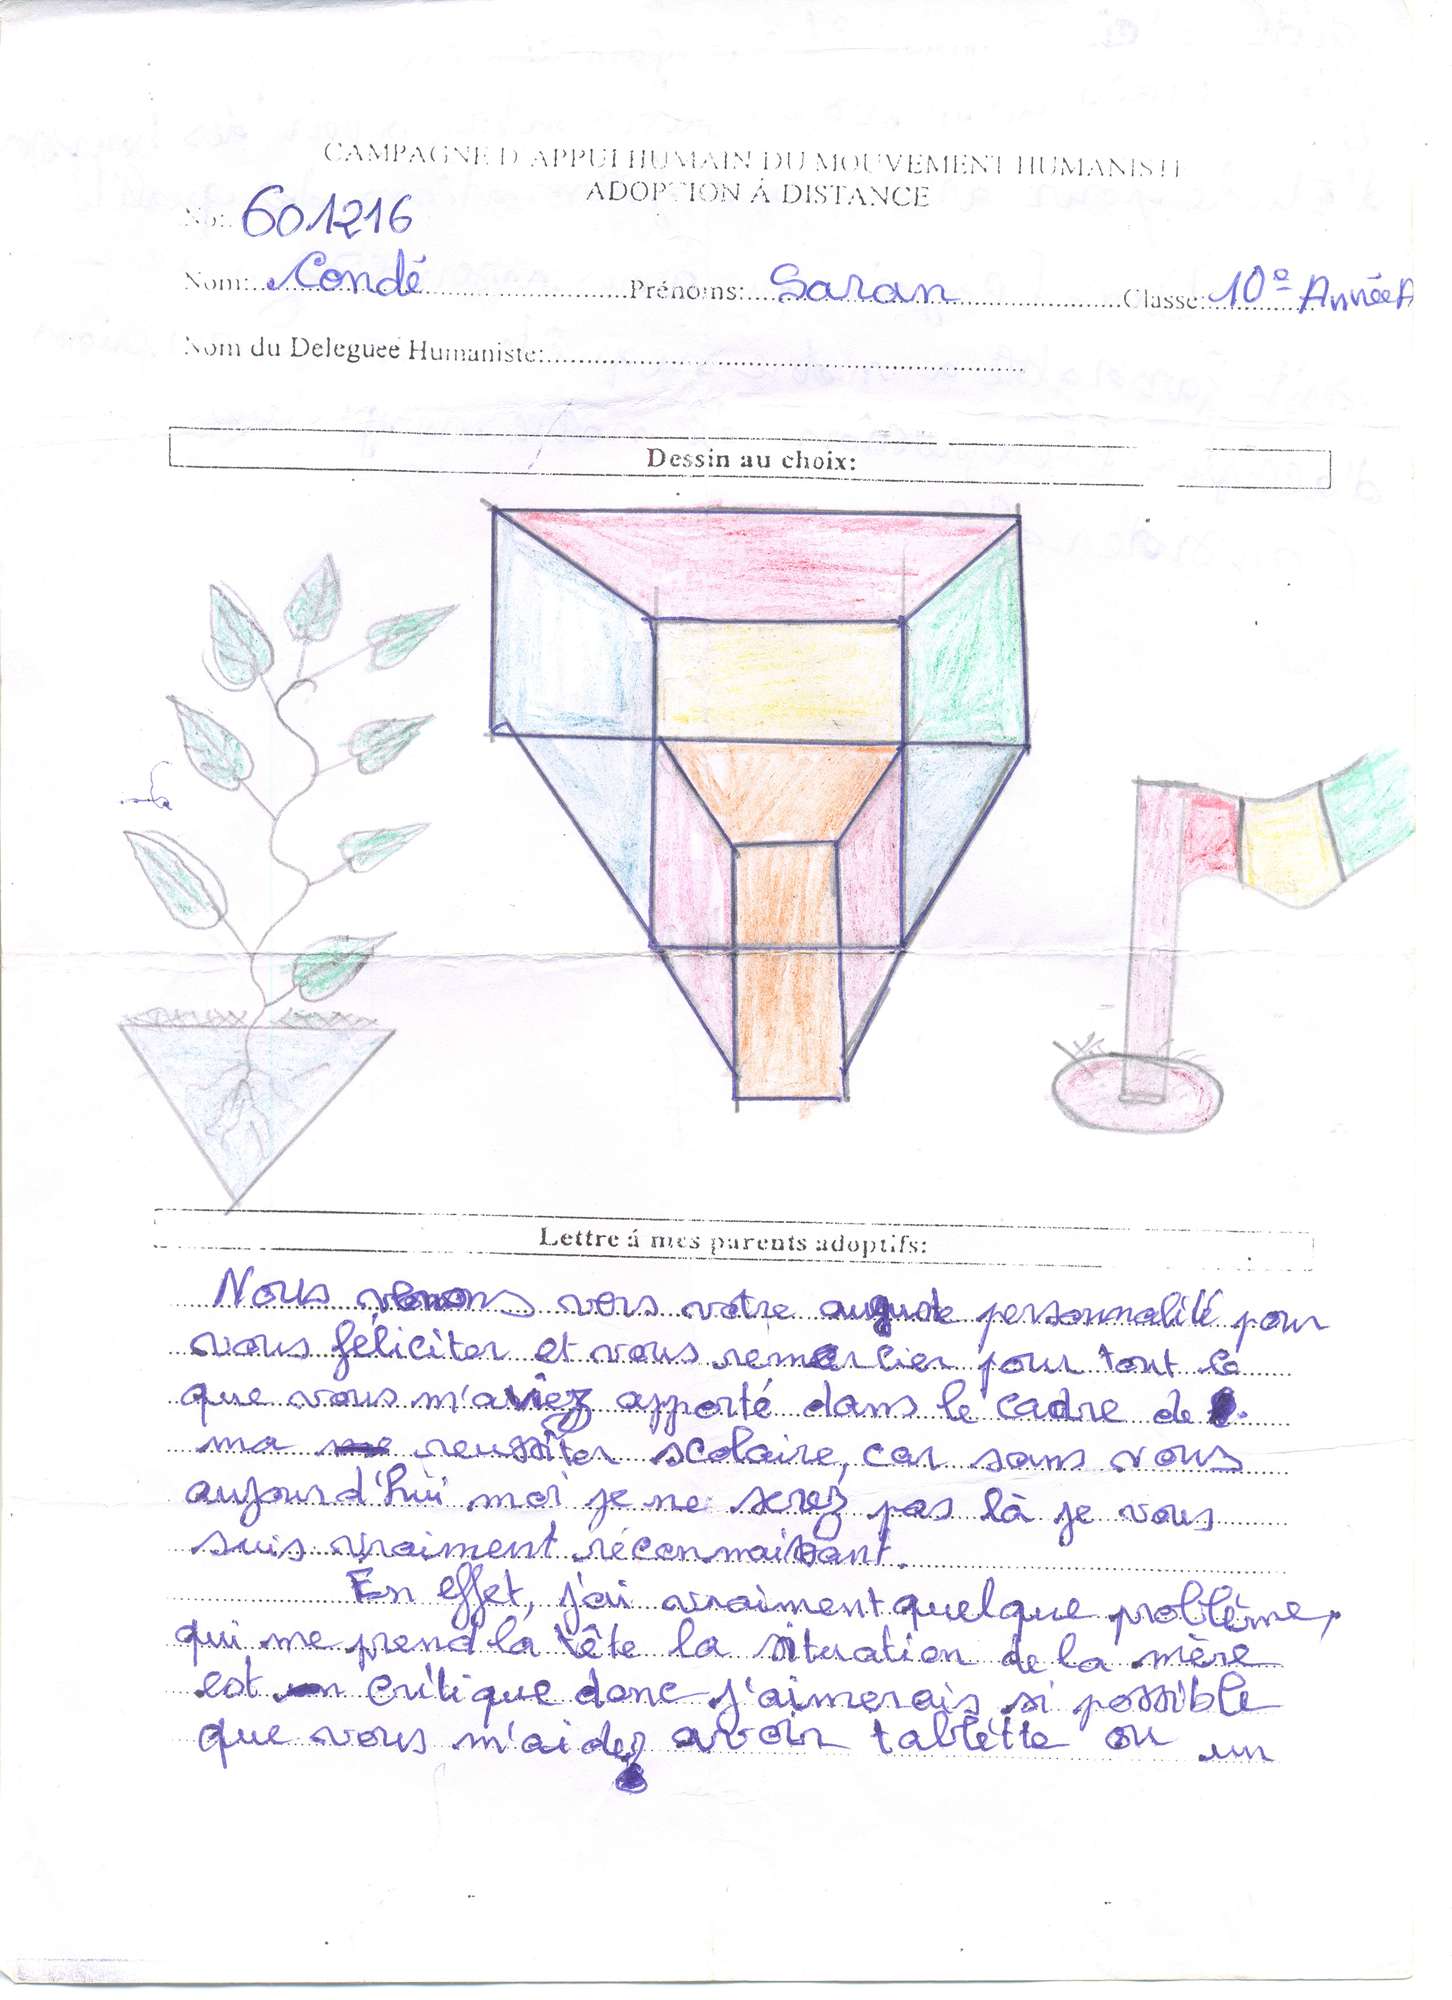 CAMPAGNE D'APPUI HUMAIN DU MOUVEMENT HUMANISTE
ADOPTION Á DISTANCE
No: 601216
Nom: Condé Prénoms: Saran Classe: 10e Année A
Nom du Deleguee Humaniste:
Dessin au choix:
Lettre á mes parents adoptifs:
Nous venons vers votre auguste personnalité pour
vous féliciter et vous remercier pour tout ce
que vous m'aviez apporté dans le cadre de
ma reussiter scolaire, car sans vous
aujourd'hui moi je ne serez pas là je vous
suis vraiment réconnaissant.
En effet, j'ai vraiment quelque problème,
qui me prend la tête la situation de la mère
est critique donc j'aimerais si possible
que vous m'aidez avoir tablètte ou un